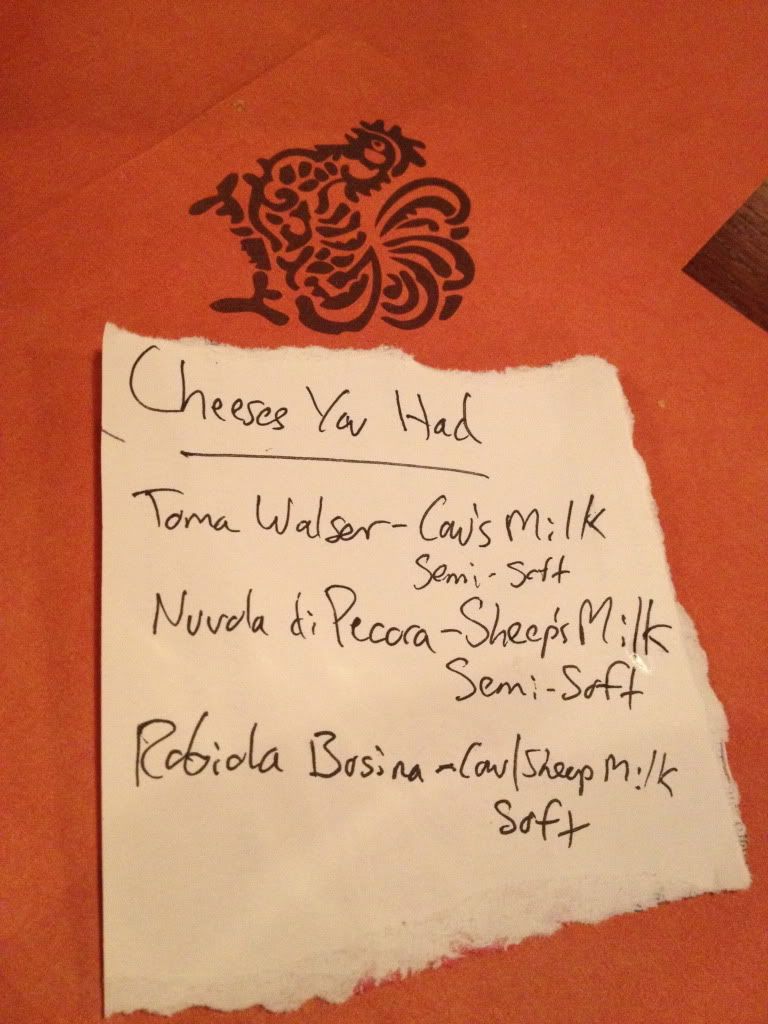 Cheeses You Had
Toma Walser - Cow's Milk
Semi-Soft
Nuvola di Pecora - Sheep's Milk
Semi-Soft
Robiola Bosina - Cow/Sheep Milk
Soft